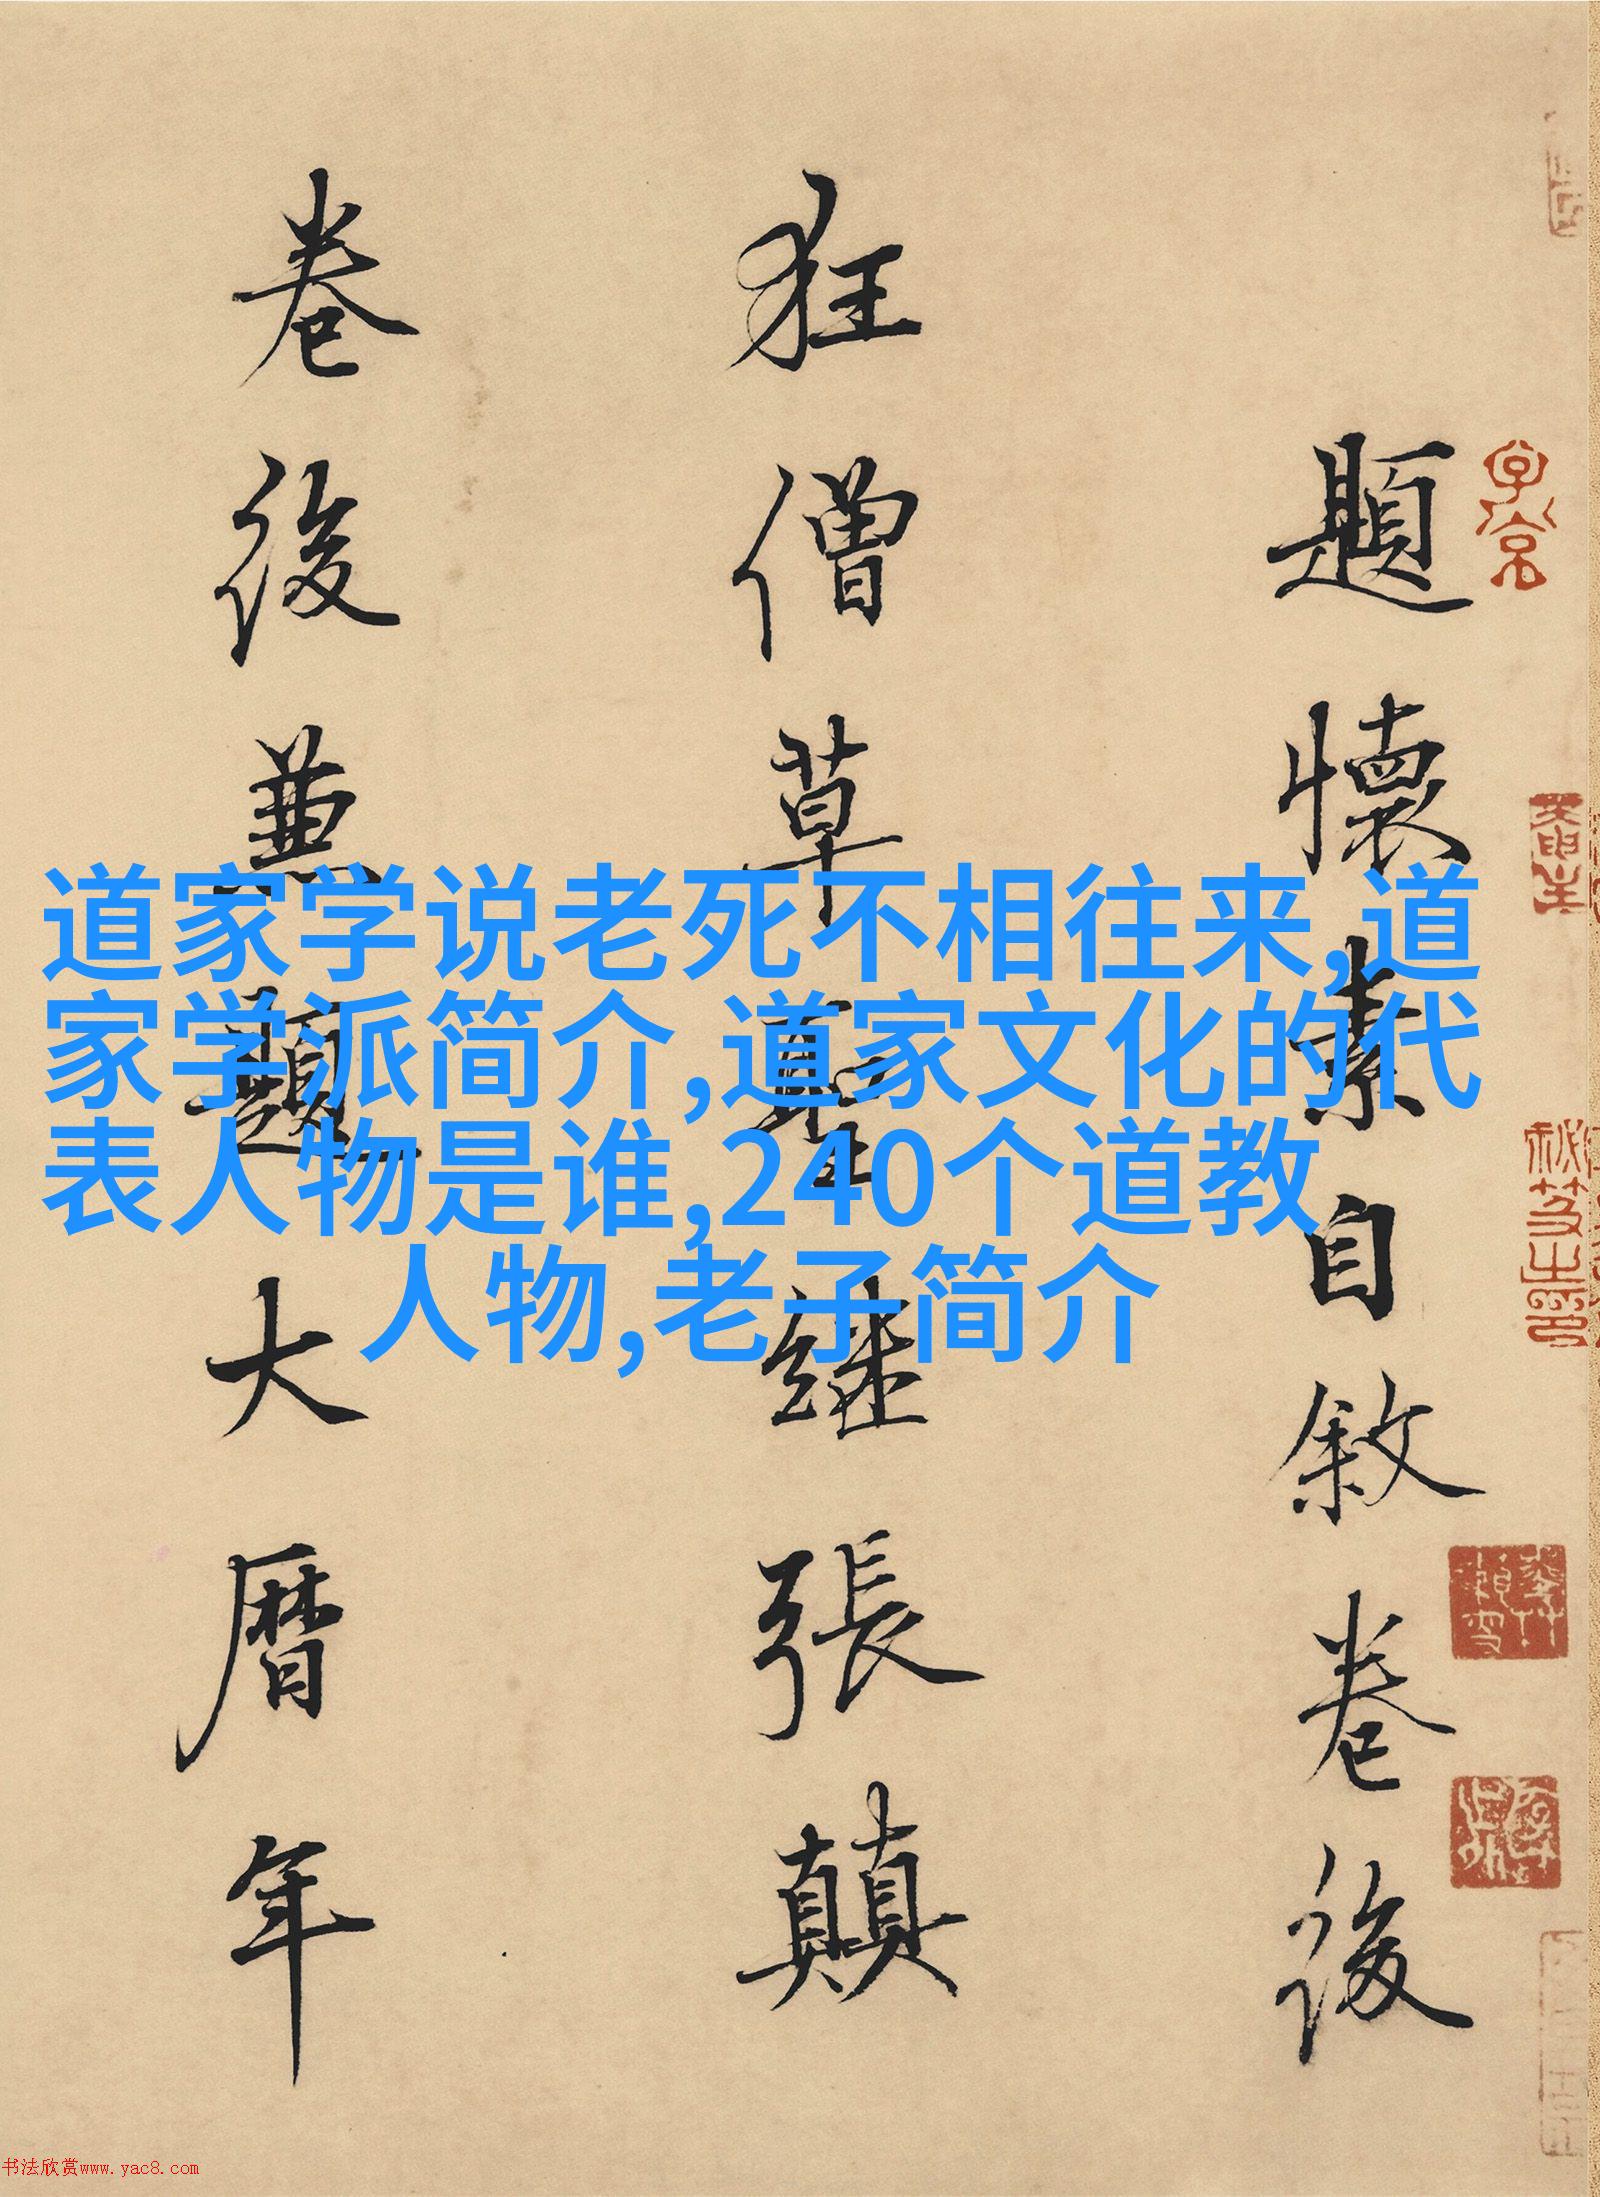 題懷素自敘卷後
狂僧草聖継張顛
卷後兼題大曆年
道家学说老死不相往来,道
家学派简介,道家文化的代
表人物是谁,240个道教
人物,老子简介
书法欣赏www.yac8.com